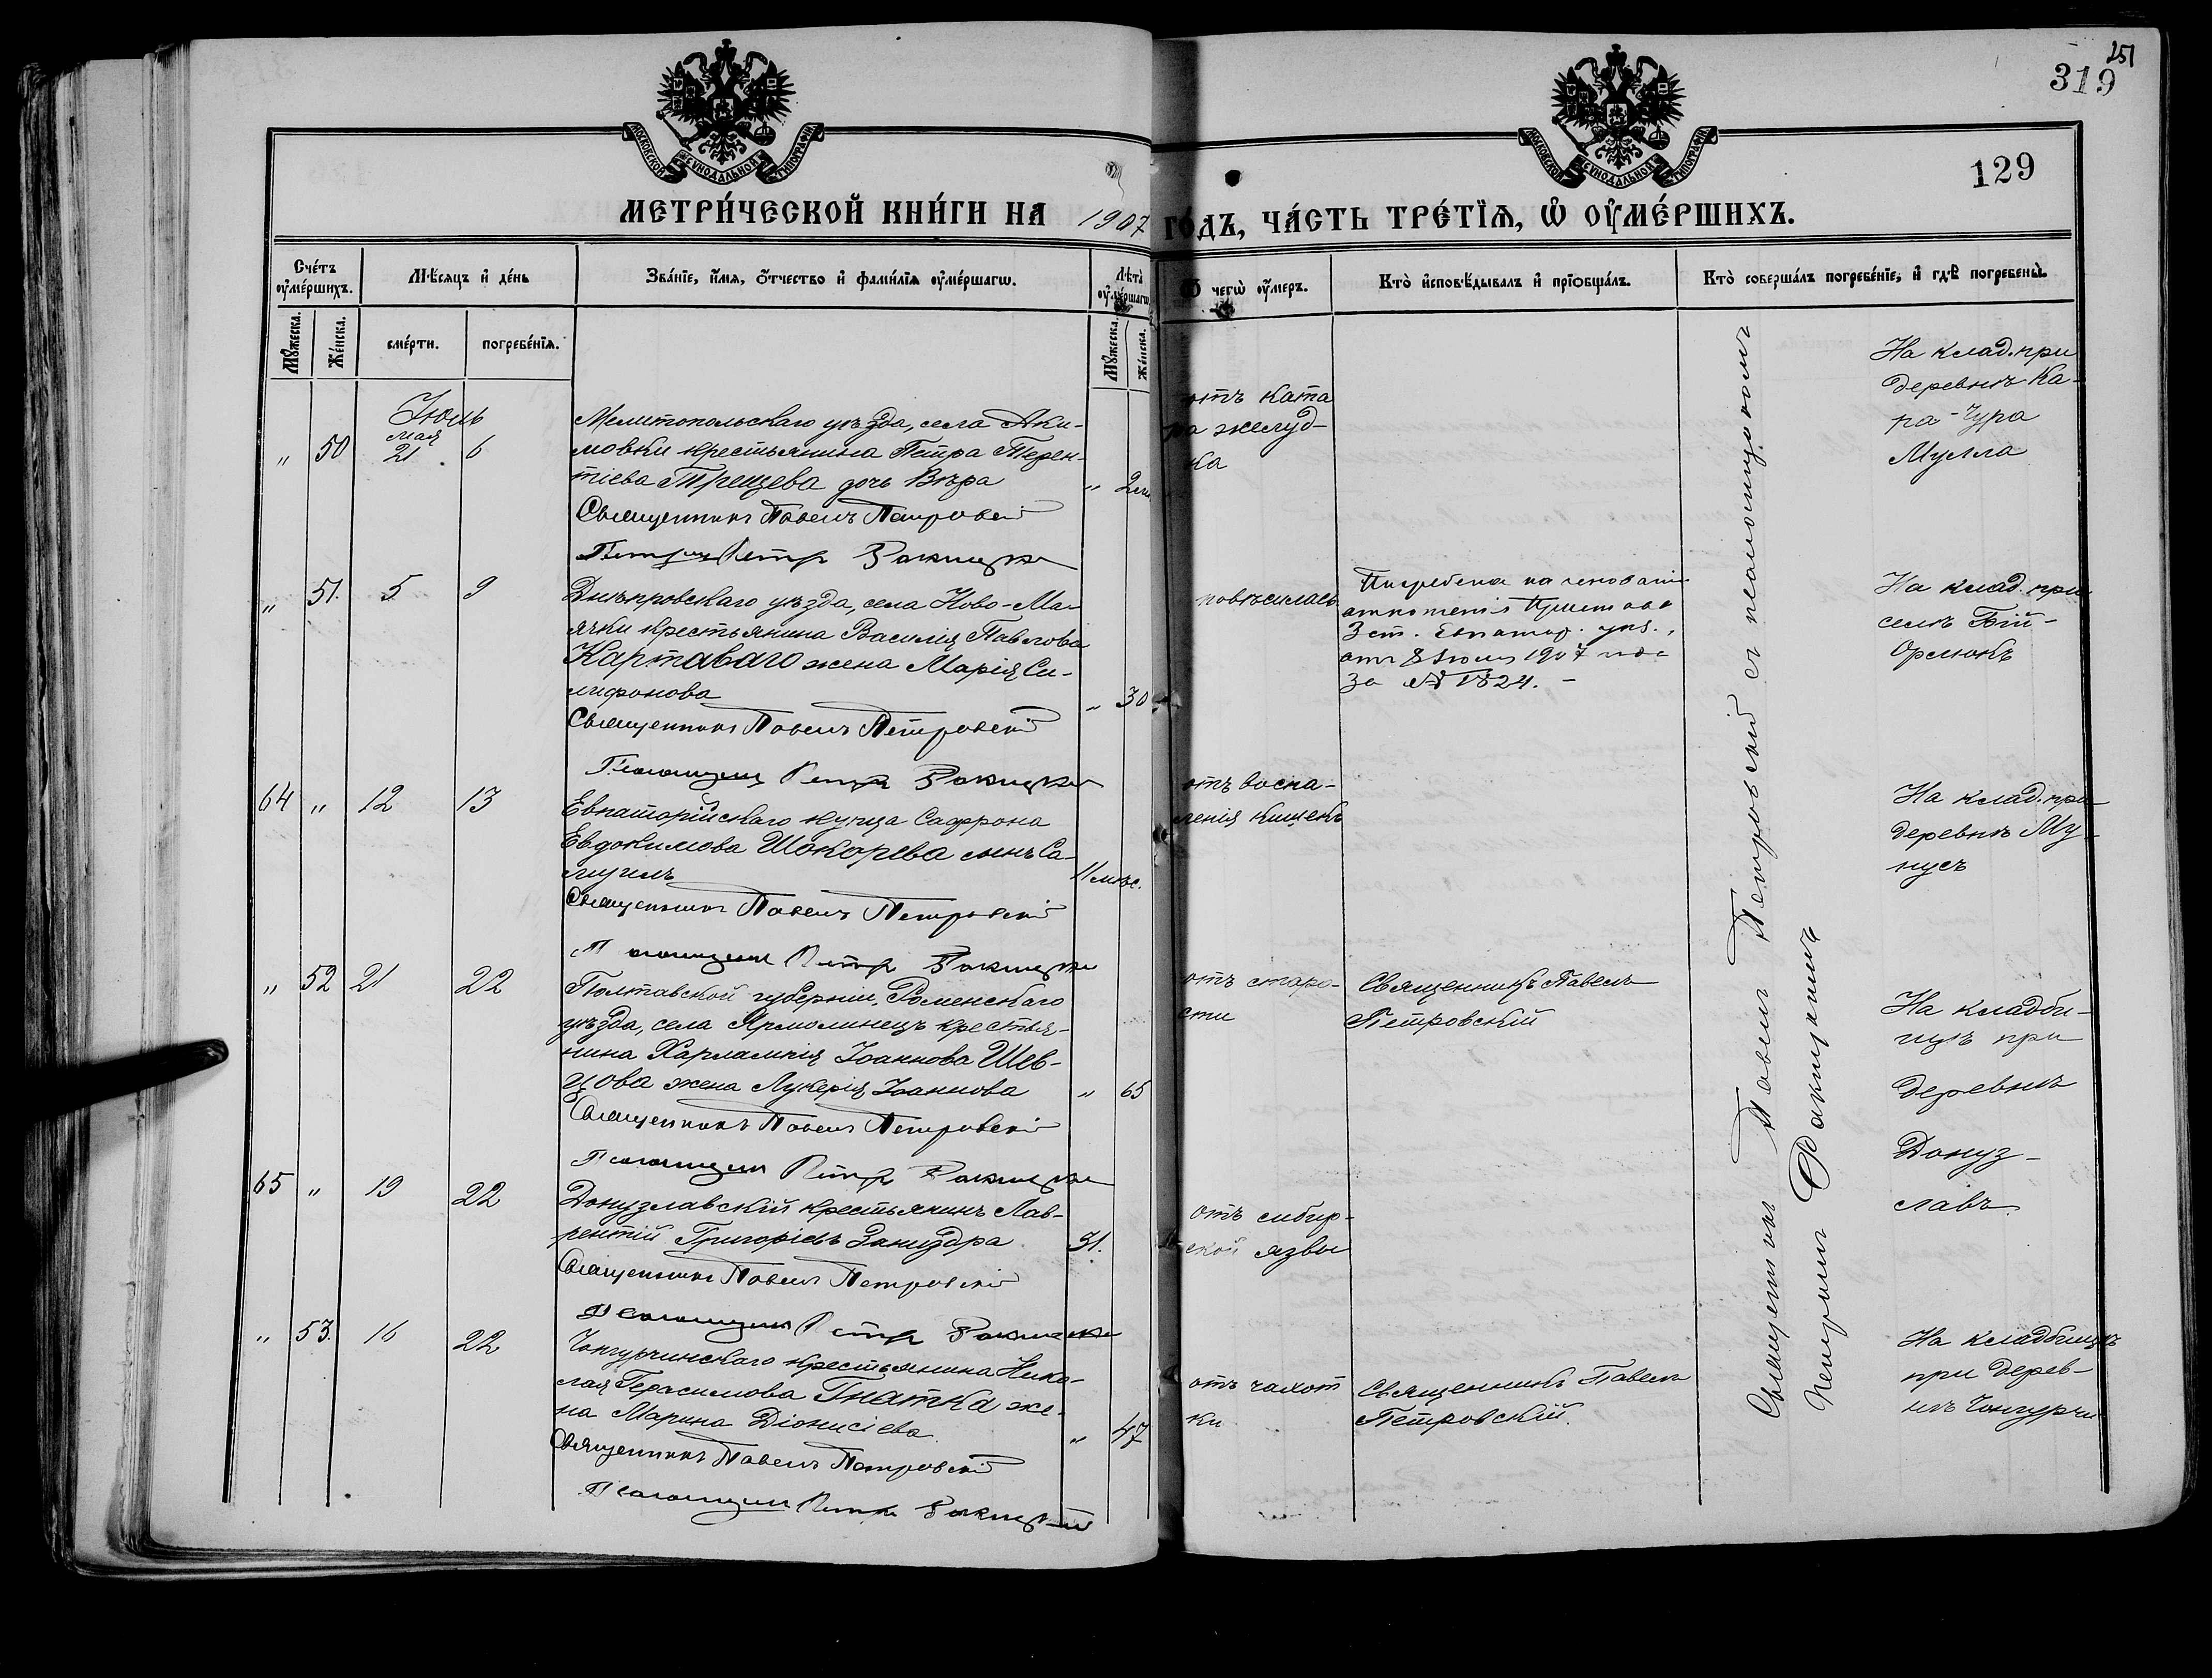 251
319
129
МОСКОВСКОЙ СѴНОДАЛЬНОЙ ТИПОГРАФІИ
МОСКОВСКОЙ СѴНОДАЛЬНОЙ ТИПОГРАФІИ
МЕТРИ́ЧЕСКОЙ КНИ́ГИ НА 1907 ГО́ДЪ, ЧА́СТЬ ТРЕ́ТЇѦ, Ѿ ОУМЕ́РШИХЪ.
Сче́тъ оуме́ршихъ.
Мѣ́сяцъ и де́нь
Зва́нїе, и́мя, о́тчество и фами́лїя оуме́ршагѡ.
Лѣта̀ оуме́ршагѡ
Ѿ чегѡ̀ оу́меръ.
Кто̀ исповѣ́дывалъ и прїобща́лъ.
Кто̀ соверша́лъ погребе́нїе, и гдѣ̀ погребены̀.
Мꙋ́жеска.
Же́нска.
сме́рти.
погребе́нїя.
Мꙋ́жеска.
Же́нска.
Іюнь
мая
" 50 21 6
Мелитопольскаго уѣзда, села Аки-
мовки крестьянина Петра Терен-
тіева Трещева дочь Вѣра " 2
Священникъ Павелъ Петровскій
Петръ Ракицкій
отъ ката
ра желуд-
ка
На клад. при
деревнѣ Ка-
ра-Чура
Мулла
" 51. 5 9
Днѣпровскаго уѣзда, села Ново-Ма-
ячки крестьянина Василія Павлова
Картаваго жена Марія Си-
лифонова " 30
Священникъ Павелъ Петровскій
Псаломщикъ Петръ Ракицкій
повѣсилась
Погребена на основаніи
отношенія Пристава
3 ст. Евпатор. уѣз.,
отъ 8 Іюня 1907 года
за № 1824. -
На клад. при
селѣ Бій-
Орлюкъ
64 " 12 13
Евпаторійскаго купца Сафрона
Евдокимова Шокарева сынъ Са-
муилъ 11 мѣс.
Священникъ Павелъ Петровскій
Псаломщикъ Петръ Ракицкій
отъ воспа-
ленія кишекъ
На клад. при
деревнѣ Му-
нусъ
" 52 21 22
Полтавской губерніи, Роменскаго
уѣзда, села Ярмолинецъ крестья-
нина Харлампія Іоаннова Шев-
цова жена Лукерія Іоаннова " 65
Священникъ Павелъ Петровскій
Псаломщикъ Петръ Ракицкій
отъ старо-
сти
Священникъ Павелъ
Петровскій
На кладби-
щѣ при
деревнѣ
Донуз-
лавъ
65 " 19 22
Донузлавскій крестьянинъ Лав-
рентій Григорьевъ Заниздра 31.
Священникъ Павелъ Петровскій
Псаломщикъ Петръ Ракицкій
отъ сибир-
ской язвы
" 53. 16 22
Чонгурчинскаго крестьянина Нико-
лая Герасимова Гнатка же-
на Марина Діонисіева " 47
Священникъ Павелъ Петровскій
Псаломщикъ Петръ Ракицкій
отъ чахот
ки
Священникъ Павелъ
Петровскій.
На кладбищѣ
при дерев-
нѣ Чонгурчи
Священникъ Павелъ Петровскій съ псаломщикомъ
Петромъ Ракицкимъ